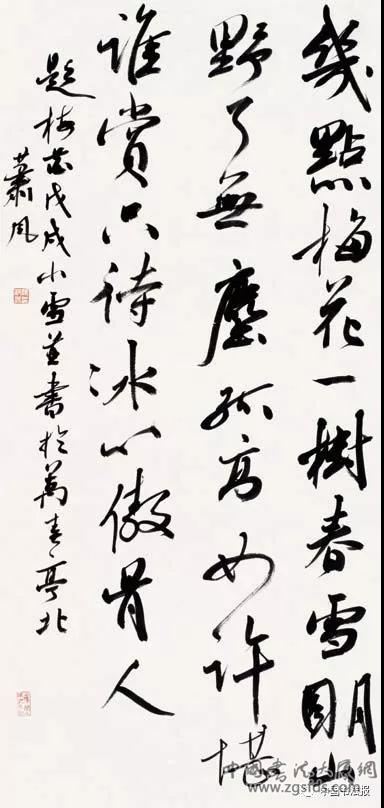 幾點梅花一樹春雪明山
野了無塵孤高如許堪
誰賞只待冰心傲骨人
題梅花戊戌小雪並書於萬春亭北
蕭風
中國書法大展網
www.zgsfds.com
中国书法报